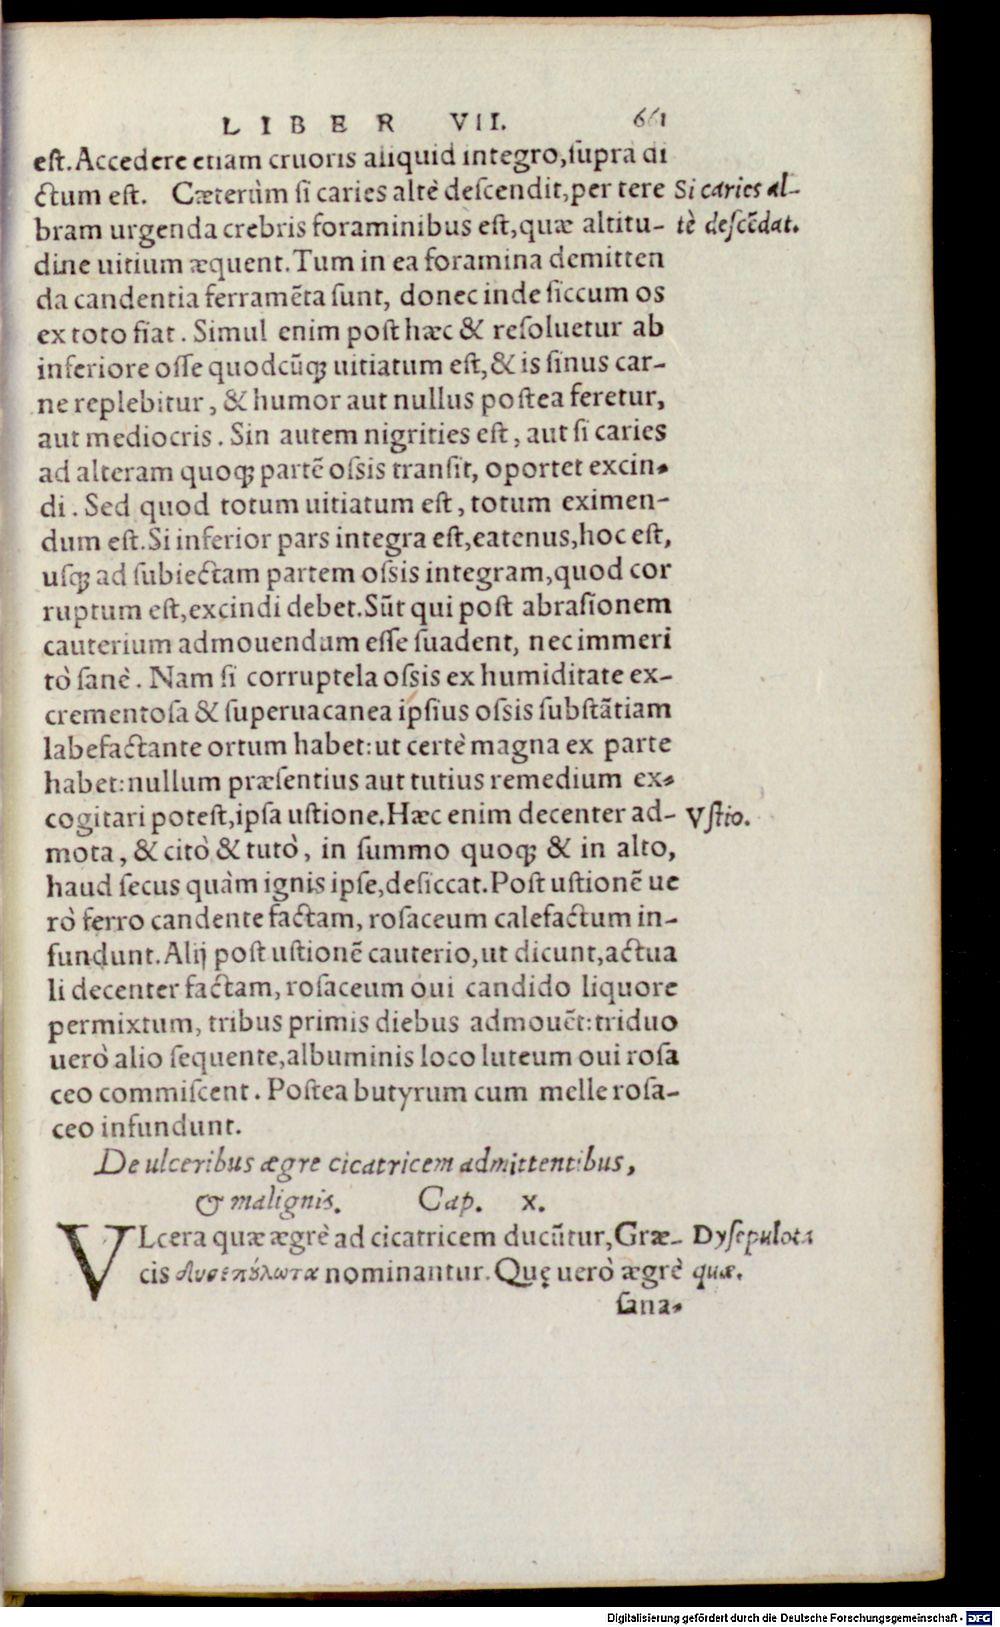 LIBER VII. 661
est. Accedere etiam cruoris aliquid integro, supra di
ctum est. Cæterùm si caries altè descendit, per tere
Si caries al-
bram urgenda crebris foraminibus est, quæ altitu-
tè descẽdat.
dine uitium æquent. Tum in ea foramina demitten
da candentia ferramẽta sunt, donec inde siccum os
ex toto fiat. Simul enim post hæc & resoluetur ab
inferiore osse quodcũq; uitiatum est, & is sinus car-
ne replebitur, & humor aut nullus postea feretur,
aut mediocris. Sin autem nigrities est, aut si caries
ad alteram quoq; partẽ ossis transit, oportet excin-
di. Sed quod totum uitiatum est, totum eximen-
dum est. Si inferior pars integra est, eatenus, hoc est,
usq; ad subiectam partem ossis integram, quod cor
ruptum est, excindi debet. Sũt qui post abrasionem
cauterium admouendum esse suadent, nec immeri
tò sanè. Nam si corruptela ossis ex humiditate ex-
crementosa & superuacanea ipsius ossis substãtiam
labefactante ortum habet: ut certè magna ex parte
habet: nullum præsentius aut tutius remedium ex-
cogitari potest, ipsa ustione. Hæc enim decenter ad-
Vstio.
mota, & citò & tutò, in summo quoq; & in alto,
haud secus quàm ignis ipse, desiccat. Post ustionẽ ue
rò ferro candente factam, rosaceum calefactum in-
fundunt. Alij post ustionẽ cauterio, ut dicunt, actua
li decenter factam, rosaceum oui candido liquore
permixtum, tribus primis diebus admouẽt: triduo
uerò alio sequente, albuminis loco luteum oui rosa
ceo commiscent. Postea butyrum cum melle rosa-
ceo infundunt.
De ulceribus ægre cicatricem admittentibus,
& malignis. Cap. X.
VLcera quæ ægrè ad cicatricem ducũtur, Græ-
Dysepulota
cis δυσεπούλωτα nominantur. Quę uerò ægrè
quæ.
sana-
Digitalisierung gefördert durch die Deutsche Forschungsgemeinschaft - DFG